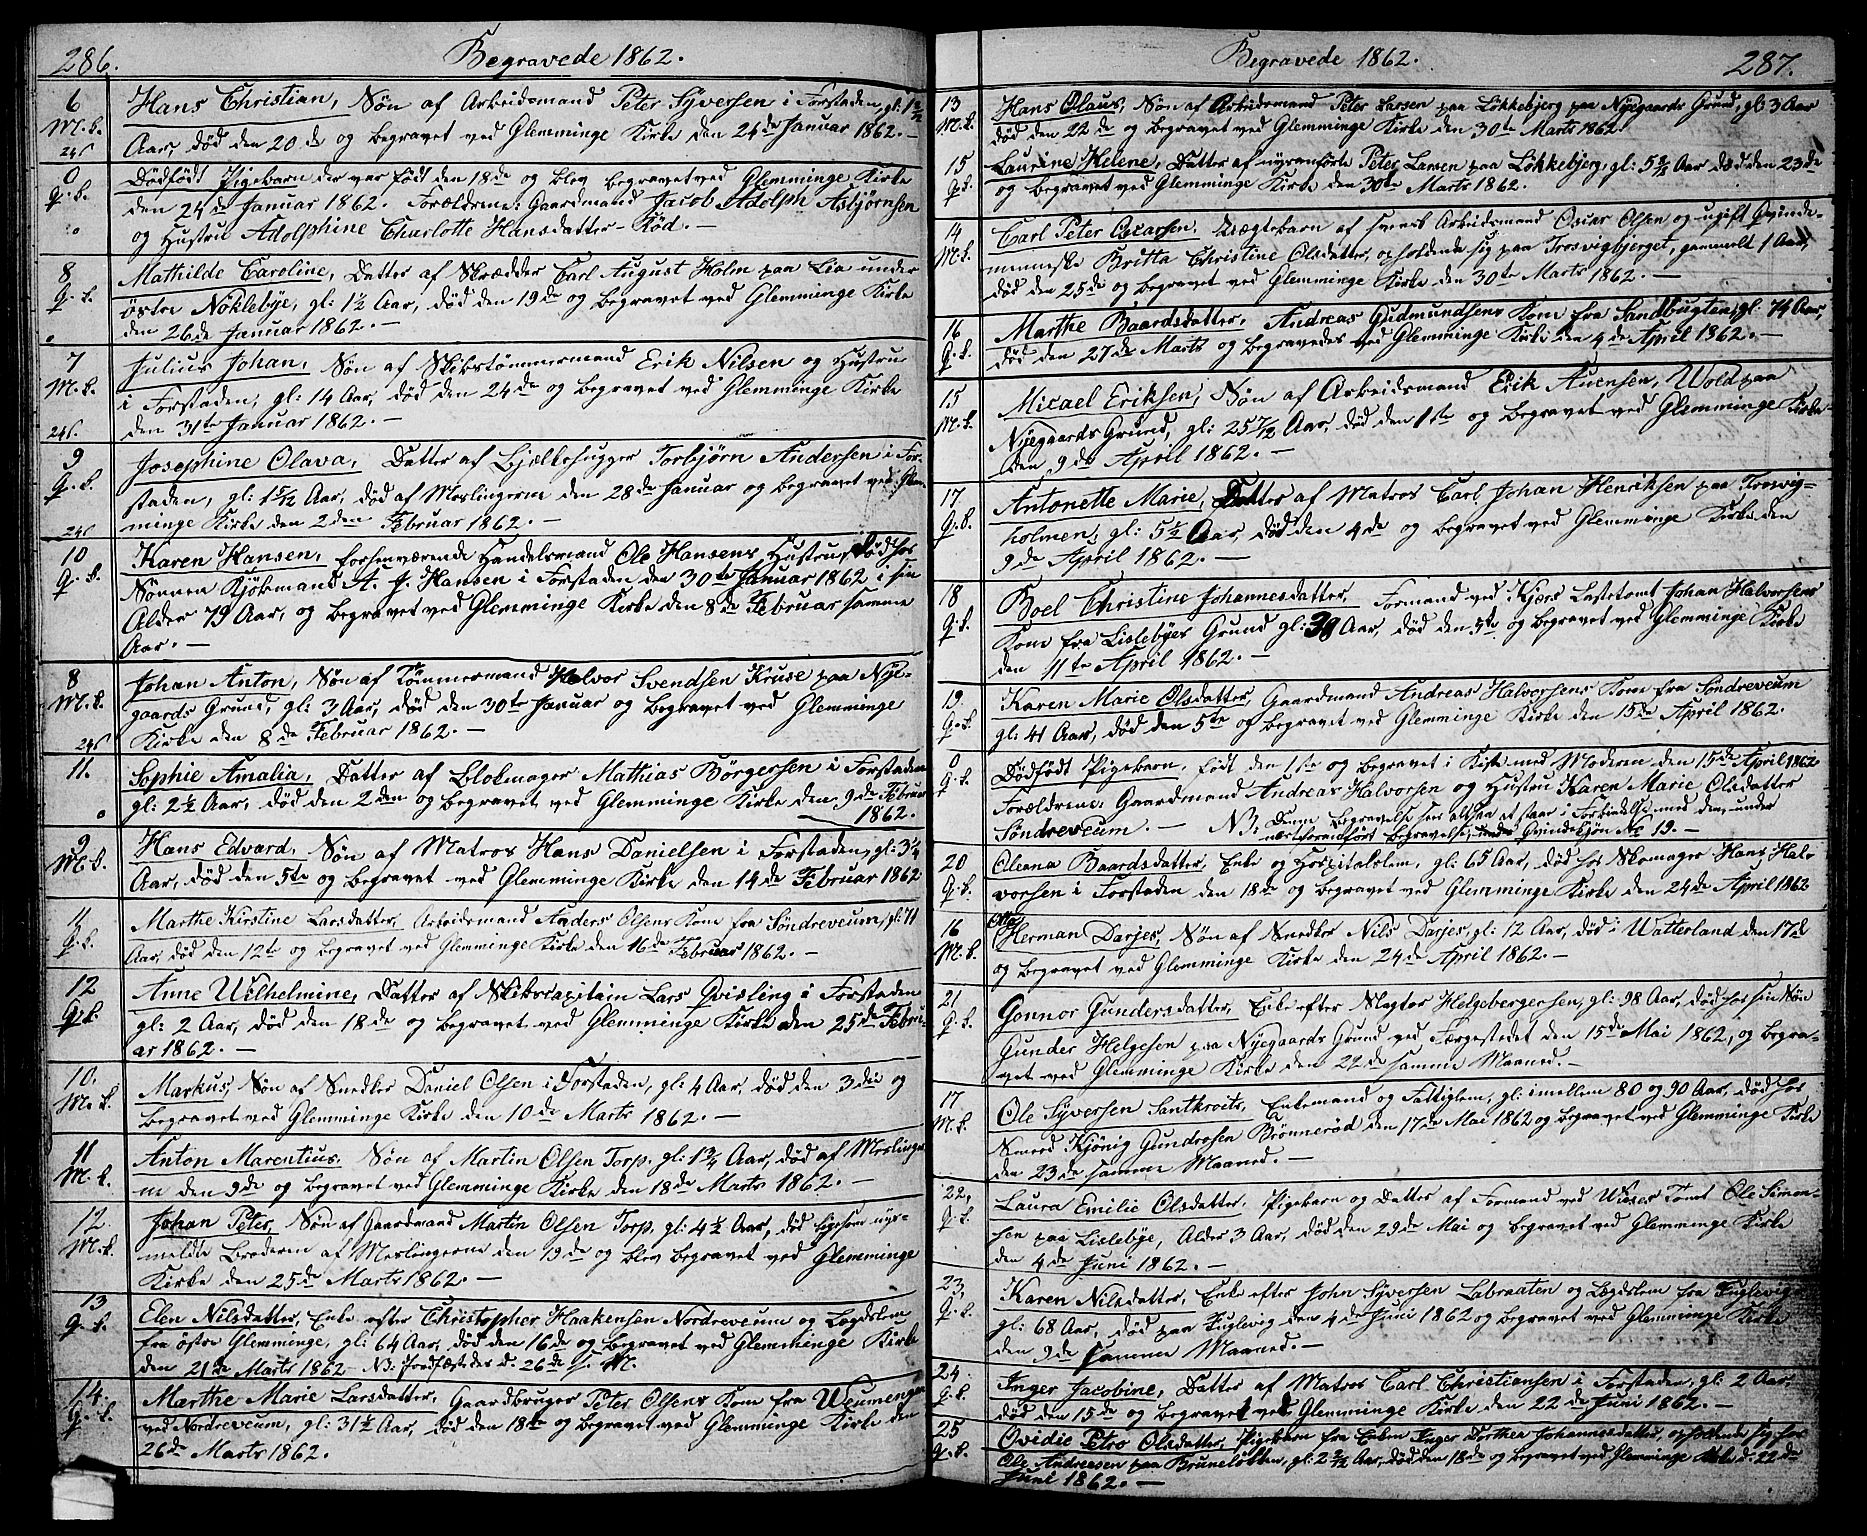 286.
Begravede 1862.
6
M.k.
24ſ
Hans Christian, Søn af Arbeidsmand Peter Syversen i Forstaden, gl: 1½
Aar, død den 20de og begravet ved Glemminge Kirke den 24de Januar 1862.—
0
Q.k.
0
Dødfødt Pigebarn der var født den 18de og blev begravet ved Glemminge Kirke
den 24de Januar 1862. Forældrene: Gaardmand Jacob Adolph Asbjørnsen
og Hustru Adolphine Charlotte Hansdatter- Rød.—
8
Q.k.
0
Mathilde Caroline, Datter af Skrædder Carl August Holm paa Lia under
østre Nøklebye, gl: 1½ Aar, død den 19de og begravet ved Glemminge Kirke
den 26de Januar 1862.—
7
M.k.
24ſ.
Julius Johan, Søn af Skibstømmermand Erik Nilsen og Hustru
i Forstaden, gl: 14 Aar, død den 24de og begravet ved Glemminge Kirke
den 31te Januar 1862.—
9
Q.k.
24ſ
Josephine Olava, Datter af Bjælkehugger Torbjørn Andersen i For-
staden, gl: 1 5/12 Aar, død af Meslingerne den 28de Januar og begravet ved Glem-
minge Kirke den 2den Februar 1862.—
10
Q.k.
Karen Hansen, forhenværende Handelsmand Ole Hansens Hustru, død hos
Sønnen Kjøbmand A. J. Hansen i Forstaden den 30te Januar 1862 i sin
Alder 79 Aar, og begravet ved Glemminge Kirke den 8de Februar samme
Aar.—
8
M.k.
24ſ
Johan Anton, Søn af Tømmermand Halvor Svendsen Kruse paa Nye-
gaards Grund, gl: 3 Aar, død den 30te Januar og begravet ved Glemminge
Kirke den 8de Februar 1862.—
11.
0
Sophie Amalia, Datter af Blokmager Mathias Børgersen i Forstaden
gl: 2½ Aar, død den 2den og begravet ved Glemminge Kirke den 9de Februar
1862.
9
M.k.
Hans Edvard, Søn af Matros Hans Danielsen i Forstaden, gl: 3¼
Aar, død den 5te og begravet ved Glemminge Kirke den 14de Februar 1862
11
Q.k.
Marthe Kirstine Larsdatter, Arbeidsmand Anders Olsens Kone fra Søndreveum, gl: 71
Aar, død den 12te og begravet ved Glemminge Kirke den 16de Februar 1862.—
12
Q.k.
Anne Wilhelmine, Datter af Skibscapitain Lars Qvisling i Forstaden
gl: 2 Aar, død den 18de og begravet ved Glemminge Kirke den 25de Febru-
ar 1862.—
10.
M.k.
Markus, Søn af Snedker Daniel Olsen i Forstaden, gl: 4 Aar, død den 3die og
begravet ved Glemminge Kirke den 10de Marts 1862.—
11
M.k.
Anton Marentius, Søn af Martin Olsen Torp, gl: 1¾ Aar, død af Meslinger-
ne den 9de og begravet ved Glemminge Kirke den 18de Marts 1862.—
12.
M.k.
Johan Peter, Søn af Gaardmand Martin Olsen Torp, gl: 4½ Aar, død ligesom nys-
meldte Broderen af Meslingerne den 19de og blev begravet ved Glemminge
Kirke den 25de Marts 1862.—
13
Q.k.
Elen Nilsdatter, Enke efter Christopher Haakensen Nordreveum og Lægdslem
fra østre Glemminge, gl: 64 Aar, død den 16de og begravet ved Glemminge Kirke
den 21de Marts 1862- NB: jordfæstedes d: 26de s. M.
14.
Q.k.
Marthe Marie Larsdatter, Gaardbruger Peter Olsens Kone fra Weumengen
ved Nordreveum, gl: 31½ Aar, død den 18de og begravet ved Glemminge Kirke den
26de Marts 1862.
Begravede 1862.
287.
13
M.k.
Hans Olaus, Søn af Arbeidsmand Peter Larsen paa Løkkebjerg paa Nyegaards Grund, gl: 3 Aar
død den 22de og begravet ved Glemminge Kirke den 30te Marts 1862.
15
Q.k.
Laurine Helene, Datter af nysanførte Peter Larsen paa Løkkebjerg, gl: 5½ Aar død den 23de
og begravet ved Glemminge Kirke den 30te Marts 1862.
14
M.k.
Carl Peter Oscarsen, Uægtebarn af svensk Arbeidsmand Oscar Olsen og ugift Qvinde-
menneske Britta Christine Olsdatter, opholdende sig paa Trosvigbjerget, gammelt 1 Aar,
død den 25de og begravet ved Glemminge Kirke den 30te Marts 1862.—
16
Q.k.
Marthe Baardsdatter, Andreas Gudmundsens Kone fra Sandbugten, gl: 74 Aar,
død den 27de Marts og begravedes ved Glemminge Kirke den 4de April 1862.—
15
M.k.
Micael Eriksen, Søn af Arbeidsmand Erik Auensen, Wold paa
Nyegaards Grund, gl: 25 7/12 Aar, død den 1ste og begravet ved Glemminge Kirke
den 9de April 1862.—
17
Q.k.
Antonette Marie, Datter af Matros Carl Johan Henriksen paa Trosvig-
holmen, gl: 5½ Aar, død den 4de og begravet ved Glemminge Kirke den
9de April 1862.—
18
Q.k.
Boel Christine Johannesdatter, Formand ved Kjærs Lastetomt Johan Halvorsens
Kone fra Lislebyes Grund gl: 39 Aar, død den 5te og begravet ved Glemminge Kirke
den 11te April 1862.—
19.
Q.k.
Karen Marie Olsdatter, Gaardmand Andreas Halvorsens Kone fra Søndreveum
gl: 41 Aar, død den 5te og begravet ved Glemminge Kirke den 15de April 1862.
0
Q.k.
Dødfødt Pigebarn, født den 1ste og begravet i Kiste med Moderen den 15de April 1862
Forældrene: Gaardmand Andreas Halvorsen og Hustru Karen Marie Olsdatter
Søndreveum.— NB: Denne Begravelse sees altsaa at staa i Forbindelse med den under
næstforanført Begravelse, Qvindekjøn No 19.—
20
Q.k.
Oleana Baardsdatter, Enke og Hospitalslem, gl: 65 Aar, død hos Skomager Hans Hal-
vorsen i Forstaden den 18de og begravet ved Glemminge Kirke den 24de April 1862
16
M.k.
Otto
Herman Darjes, Søn af Snedker Nils Darjes, gl: 12 Aar, død i Watterland den 17de
og begravet ved Glemminge Kirke den 24de April 1862.—
21
Q.k.
Gonnor Gundersdatter, Enke efter Slagter Helgebergersen, gl: 98 Aar, død hos sin Søn
Gunder Helgesen paa Nyegaards Grund ved Færgestedet den 15de Mai 1862, og begra-
vet ved Glemminge Kirke den 22de samme Maaned.—
17
M.k.
Ole Syversen Santkroits, Enkemand og Fattiglem, gl: imellem 80 og 90 Aar, død hos
Smed Kjønig Gundrosen Brønnerød den 17de Mai 1862 og begravet ved Glemminge Kirke
den 23de samme Maaned.—
22,
Q.k.
Laura Emilie Olsdatter, Pigebarn og Datter af Formand ved Wieses Tomt Ole Simon-
sen paa Lislebye, Alder 3 Aar, død den 29de Mai og begravet ved Glemminge Kirke
den 4de Juni 1862.—
23,
Q.k.
Karen Nilsdatter, Enke efter John Syversen Labraaten og Lægdslem fra Fuglevig
gl: 68 Aar, død paa Fuglevig den 4de Juni 1862 og begravet ved Glemminge Kirke
den 9de samme Maaned.—
24.
Q.k.
Inger Jacobine, Datter af Matros Carl Christiansen i Forstaden, gl: 2 Aar,
død den 15de og begravet ved Glemminge Kirke den 22de Juni 1862.—
25
Q.k.
Ovidie Petro Olsdatter, Pigebarn fra Enken Inger Dorthea Johannesdatter, opholdende sig hos
Ole Andreassen paa Bruneløkken, gl: 2 2/12 Aar, død den 18de og begravet ved Glemminge Kirke d: 22de
Juni 1862.—